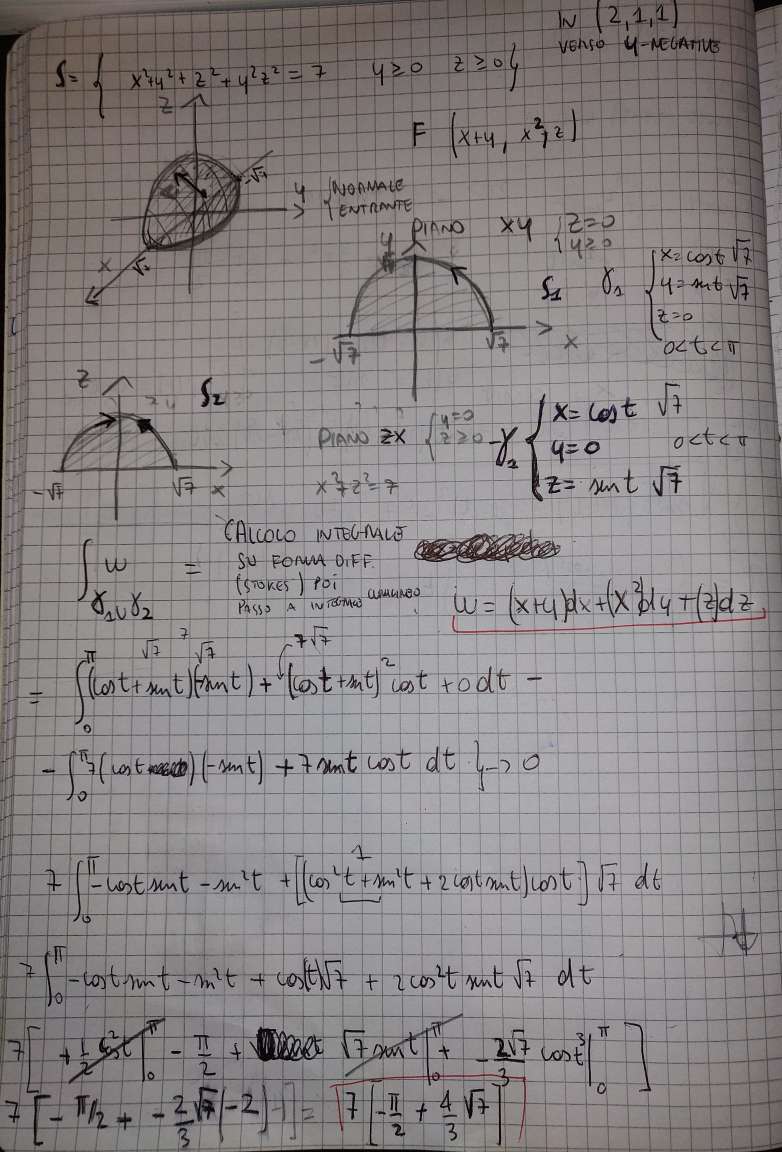 IN (2,1,1)
VERSO Y-NEGATIVE
S = { x²+y²+z²+y²z² = 7 y≥0 z≥0 }
F (x+y, x², z)
z
-√7
y
{ NORMALE
{ ENTRANTE
x
√7
PIANO XY { z=0
{ y≥0
y
√7
S₁
-√7
√7
x
γ₁ { x = cost √7
y = sint √7
z=0
0<t<π
z
S₂
-√7
√7
x
PIANO ZX { y=0
{ z≥0
x²+z²=7
-γ₂ { x = cost √7
y=0
z = sint √7
0<t<π
∫ w =
γ₁∪γ₂
CALCOLO INTEGRALE
SU FORMA DIFF.
(STOKES) POI
PASSO A INTEGRALE
w = (x+y)dx+(x²)dy+(z)dz
√7 7 √7 7√7
= ∫₀^π (cost+sint)(-sint) + (cost+sint)² cost + 0 dt -
- ∫₀^π 7(cost)(-sint) + 7 sint cost dt } → 0
1
7 ∫₀^π -cost sint - sin²t + [(cos²t + sin²t + 2cost sint)cost] √7 dt
7 ∫₀^π -cost sint - sin²t + cos(t)√7 + 2cos²t sint √7 dt
7 [ +1/2 cos²t |₀^π - π/2 + √7 sint |₀^π + - 2√7/3 cost³ |₀^π ]
7 [ -π/2 + - 2/3 √7 (-2) ] = 7 [ -π/2 + 4/3 √7 ]